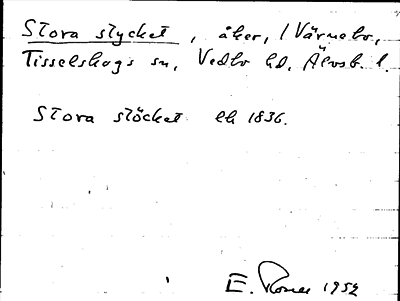 Stora stycket, åker, i Värnebo,
Tisselskogs sn, Vedbo hd, Älvsb. l.
Stora stöcket lh 1836.
E. 1952